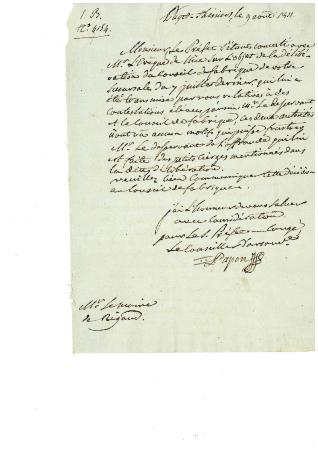 1 B.
N.° 4154
Puget-Théniers, le 9 août 1811.
Monsieur, Le Préfet s'étant concerté avec
Mr. l'Evêque de Nice sur l'objet de la délibé-
ration du Conseil de fabrique de votre
succursale du 7 juillet dernier, qui lui a
été transmise par vous relative à des
contestations élevées parmi Mr. Le Desservant
et le Conseil de fabrique, ces deux autorités
n'ont vu aucun motif qui puisse frustrer
Mr. Le desservant de l'offrande qui lui
est faite des petits cierges mentionnés dans
la de délibération.
Veuillez bien communiquer cette décision
au Conseil de fabrique.
j'ai l'honneur de vous saluer
avec considération
pour Le S. Préfet en Congé
Le Conseiller d'arrond.
Papon
Mr. Le maire
de Rigaud.